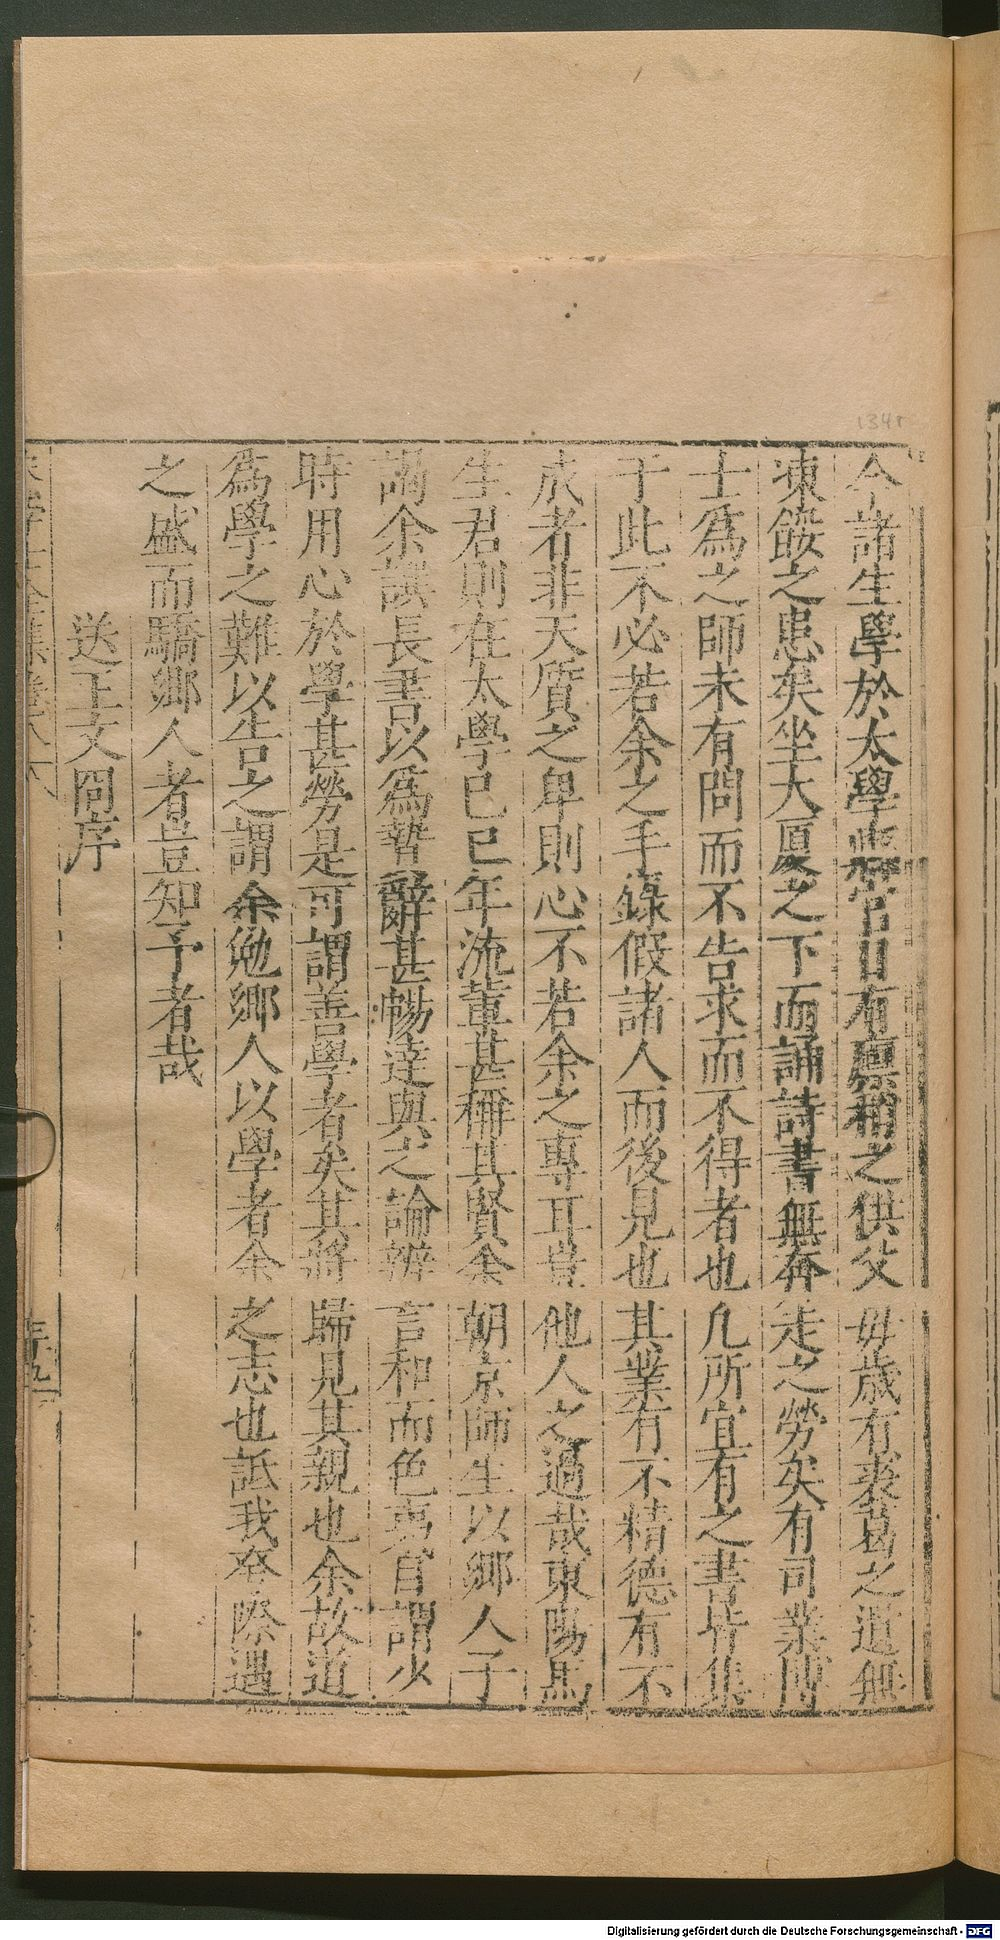 今諸生學於太學縣官日有廩稍之供父母歲有裘葛之遺無
凍餒之患矣坐大厦之下而誦詩書無奔走之勞矣有司業博
士爲之師未有問而不告求而不得者也凡所宜有之書皆集
于此不必若余之手錄假諸人而後見也其業有不精德有不
成者非天質之卑則心不若余之專耳豈他人之過哉東陽馬
生君則在太學已巳年流輩甚稱其賢余朝京師生以鄉人子
謁余譔長書以爲贄辭甚暢達與之論辨言和而色夷自謂少
時用心於學甚勞是可謂善學者矣其將歸見其親也余故道
爲學之難以告之謂余勉鄉人以學者余之志也詆我夸際遇
之盛而驕鄉人者豈知予者哉
送王文冏序
1341
Digitalisierung gefördert durch die Deutsche Forschungsgemeinschaft - DFG